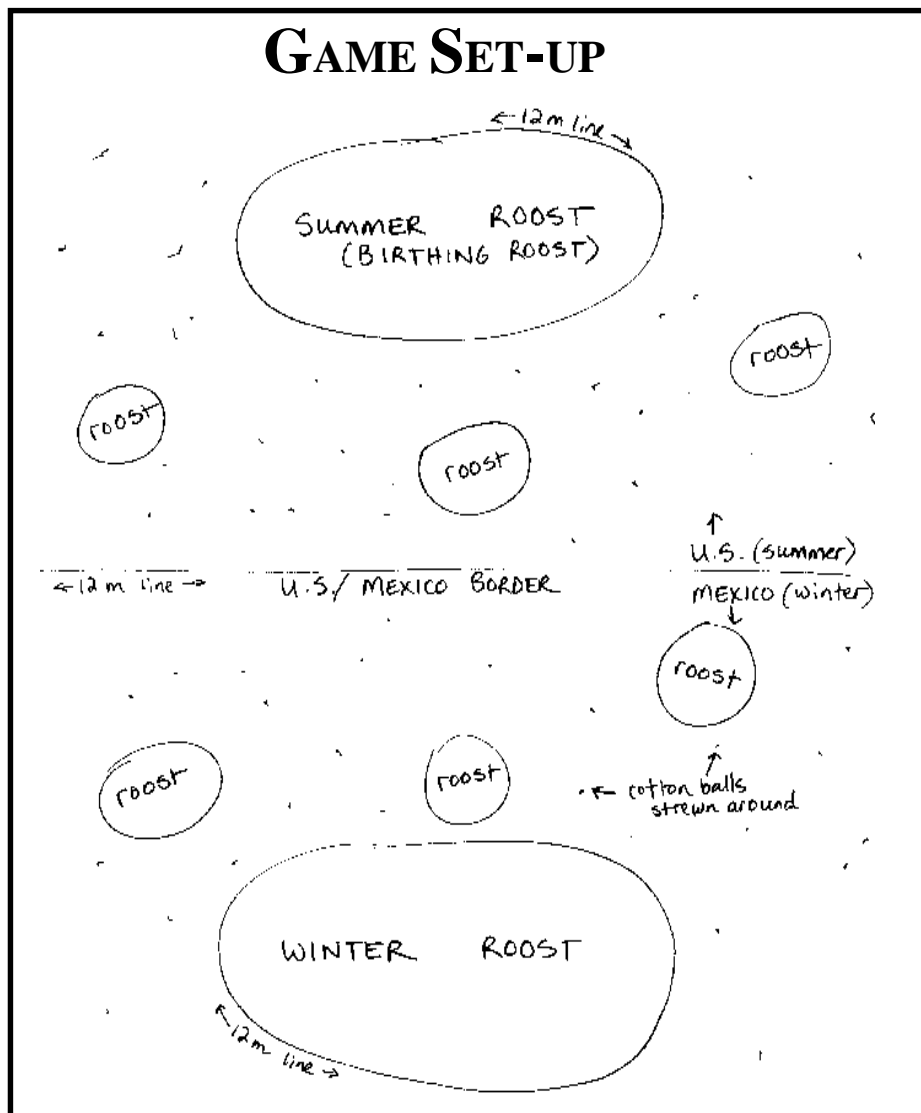 GAME SET-UP
← 12 m line →
SUMMER ROOST
(BIRTHING ROOST)
roost
roost
roost
↑
U.S. (summer)
← 12 m line →
U.S./ MEXICO BORDER
MEXICO (winter)
↓
roost
roost
roost
↑
← cotton balls
strewn around
WINTER ROOST
← 12 m line →